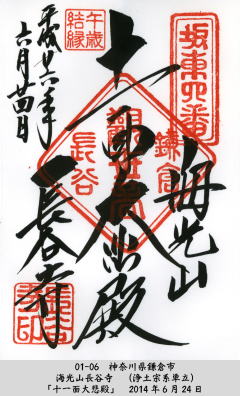 坂東四番
海光山
鎌倉
十一面大悲殿
観世音
長谷
長谷寺
午歳
結縁
平成廿六年
六月廿四日
01-06 神奈川県鎌倉市
海光山長谷寺 (浄土宗系単立)
「十一面大悲殿」 2014年6月24日